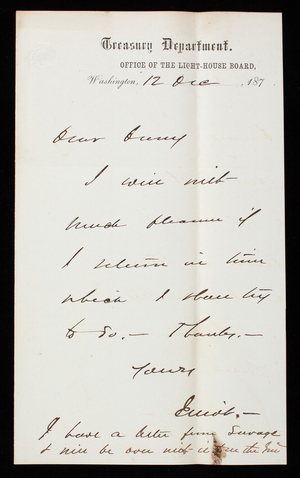 Treasury Department.
OFFICE OF THE LIGHT-HOUSE BOARD,
Washington, 12 Dec , 187
Dear
I will with
much pleasure if
I return in time
which I shall try
to do. — Thanks. —
Yours
I have a letter from Savage
& will be over